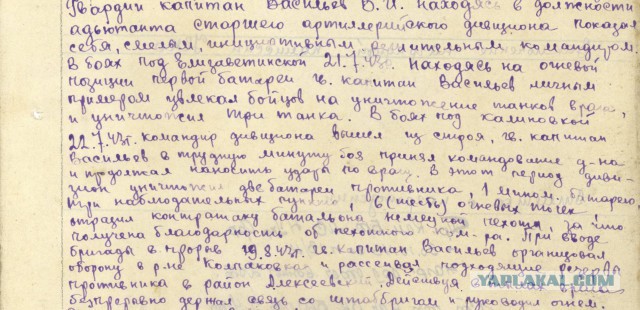 Гвардии капитан Васильев В.И. находясь в должности
адъютанта старшего артиллерийского дивизиона показал
себя, смелым, инициативным решительным командиром.
В боях под Елизаветинской 21.7.43г. Находясь на огневой
позиции первой батареи гв. капитан Васильев личным
примером увлекал бойцов на уничтожение танков врага,
и уничтожил три танка. В боях под Калиновкой
22.7.43г. командир дивизиона вышел из строя, гв. капитан
Васильев в трудную минуту боя принял командование д-на
и продолжал наносить удары по врагу. В этот период диви-
зион уничтожил две батареи противника, 1 мином. батарею,
три наблюдательных пункта, 6 (шесть) огневых точек,
отразил контратаку батальона немецкой пехоты, за что
получена благодарность от пехотного ком-ра. При вводе
бригады в прорыв 19.8.43г. гв. капитан Васильев организовал
оборону в р-не Колпаковка, рассеивал подходящие резервы
противника в район Алексеевка. Действуя врага
беспрерывно держал связь со штабригом и руководил огнем.
YAPLAKAL.COM